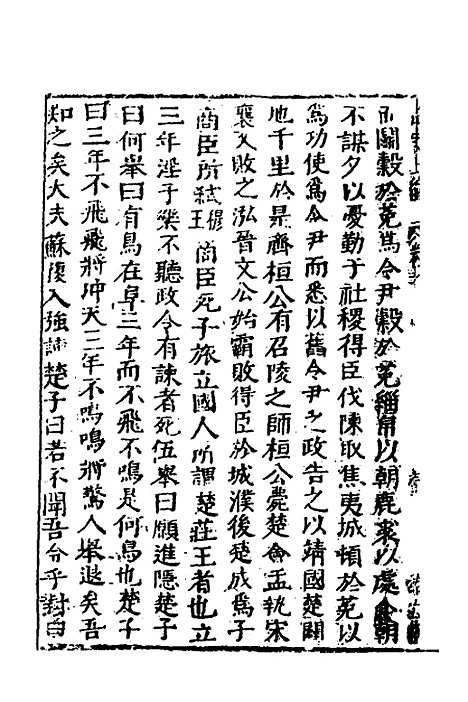 而鬭穀於菟為令尹穀於菟緇帛以朝鹿裘以處會朝
不謀夕以憂勤于社稷得臣伐陳取焦夷城頓於菟以
為功使為令尹而悉以舊令尹之政告之以靖國楚闢
地千里於是齊桓公有召陵之師桓公薨楚會盂執宋
襄又敗之泓晉文公始霸敗得臣於城濮後楚成為子
商臣所弒穆王商臣死子旅立國人所謂楚莊王者也立
三年淫于樂不聽政令有諫者死伍舉曰願進隱楚子
曰何舉曰有鳥在阜三年而不飛不鳴是何鳥也楚子
曰三年不飛飛將沖天三年不鳴鳴將驚人舉退矣吾
知之矣大夫蘇復入強諫楚子曰若不聞吾令乎對曰